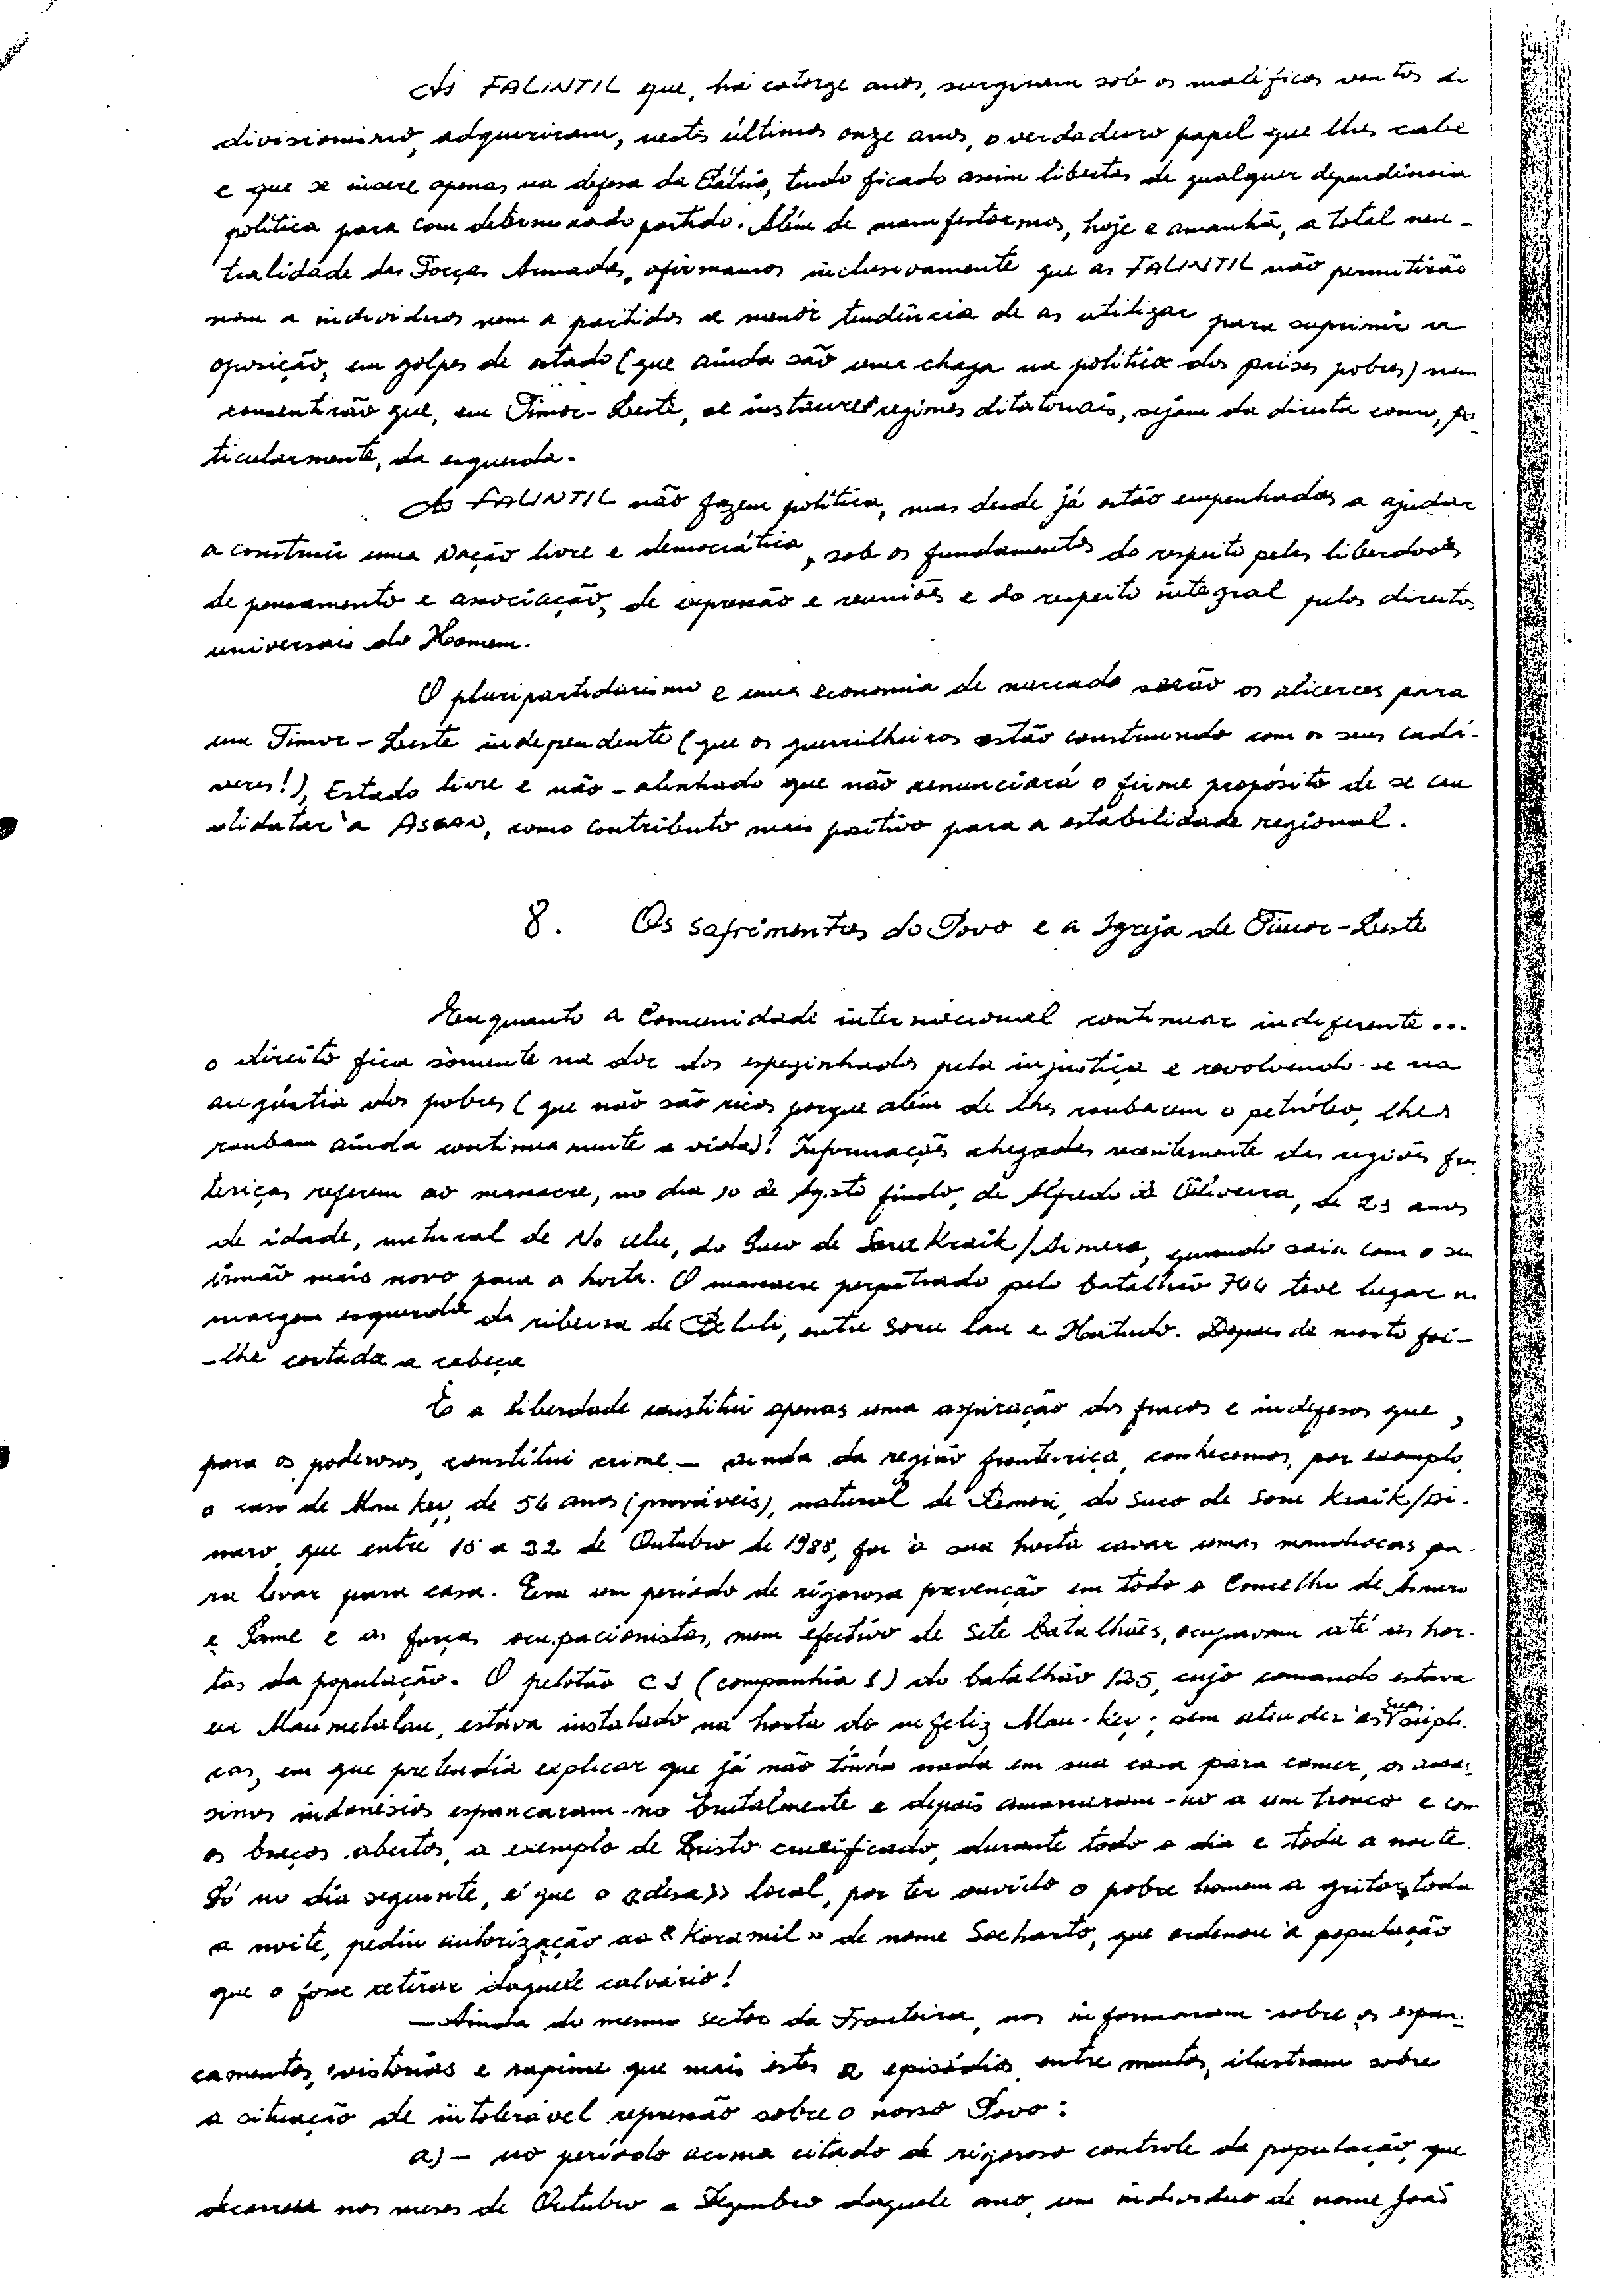 As FALINTIL que, há catorze anos, surgiram sob os maléficos ventos de
divisionismo, adquiriram, nestes últimos onze anos, o verdadeiro papel que lhes cabe
e que se insere apenas na defesa da Pátria, tendo ficado assim libertas de qualquer dependência
política para com determinado partido. Além de manifestarmos, hoje e amanhã, a total neu-
tralidade das Forças Armadas, afirmamos inclusivamente que as FALINTIL não permitirão
nem a indivíduos nem a partidos a menor tendência de as utilizar para suprimir a
oposição, em golpes de estado (que ainda são uma chaga na política dos países pobres) nem
consentirão que, em Timor-Leste, se instaure regimes ditatoriais, sejam da direita como, par-
ticularmente, da esquerda.
As FALINTIL não fazem política, mas desde já estão empenhadas a ajudar
a construir uma Nação livre e democrática, sob os fundamentos do respeito pelas liberdades
de pensamento e associação, de expressão e reuniões e do respeito integral pelos direitos
universais do Homem.
O pluripartidarismo e uma economia de mercado serão os alicerces para
um Timor-Leste independente (que os guerrilheiros estão construindo com os seus cadá-
veres!), Estado livre e não-alinhado que não renunciará o firme propósito de se can
didatar à Asean, como contributo mais positivo para a estabilidade regional.
8. Os sofrimentos do Povo e a Igreja de Timor-Leste
Enquanto a Comunidade internacional continuar indiferente...
o direito fica sòmente na dor dos espezinhados pela injustiça e revolvendo-se na
angústia dos pobres (que não são ricos porque além de lhes roubarem o petróleo, lhes
roubam ainda continuamente a vida)! Informações chegadas recentemente das regiões fron
teiriças referem ao massacre, no dia 10 de Agosto findo, de Alfredo de Oliveira, de 23 anos
de idade, natural de No ulu, do Suco de Soru Kraik/Ainaro, quando saía com o seu
irmão mais novo para a horta. O massacre perpetrado pelo batalhão 744 teve lugar na
margem esquerda da ribeira de Belulu, entre Soru lau e Hatudo. Depois de morto foi-
-lhe cortada a cabeça
E a liberdade constitui apenas uma aspiração dos fracos e indefesos que,
para os poderosos, constitui crime — ainda da região fronteiriça, conhecemos, por exemplo,
o caso de Mau Key, de 54 anos (prováveis), natural de Remori, do Suco de Soru Kraik/Ai-
naro, que entre 15 a 22 de Outubro de 1988, foi à sua horta cavar umas mandiocas pa-
ra levar para casa. Era um período de rigorosa prevenção em todo o Concelho de Ainaro
e Same e as forças ocupacionistas, num efectivo de sete batalhões, ocupavam até as hor-
tas da população. O pelotão C1 (companhia 1) do batalhão 125, cujo comando estava
em Maumetalau, estava instalado na horta do infeliz Mau-Key; sem atender às suas súpli-
cas, em que pretendia explicar que já não tinha nada em sua casa para comer, os assas-
sinos indonésios espancaram-no brutalmente e depois amarraram-no a um tronco e com
os braços abertos, a exemplo de Cristo crucificado, durante todo o dia e toda a noite.
Só no dia seguinte, é que o «desa» local, por ter ouvido o pobre homem a gritar toda
a noite, pediu autorização ao «Koramil» de nome Soeharto, que ordenou à população
que o fosse retirar daquele calvário!
— Ainda do mesmo sector da Fronteira, nos informaram sobre os espan-
camentos, vistorias e rapina que mais estes 2 episódios, entre muitos, ilustram sobre
a situação de intolerável repressão sobre o nosso Povo:
a) — no período acima citado de rigoroso controle da população, que
decorreu nos meses de Outubro a Dezembro daquele ano, um indivíduo de nome João